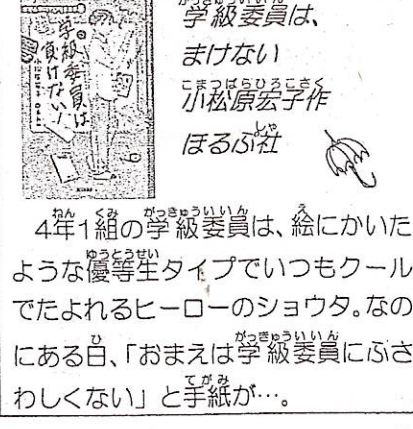 学級委員は、
まけない
小松原宏子作
ほるぷ社
学級委員は
負けない!
4年1組の学級委員は、絵にかいた
ような優等生タイプでいつもクール
でたよれるヒーローのショウタ。なの
にある日、「おまえは学級委員にふさ
わしくない」と手紙が…。